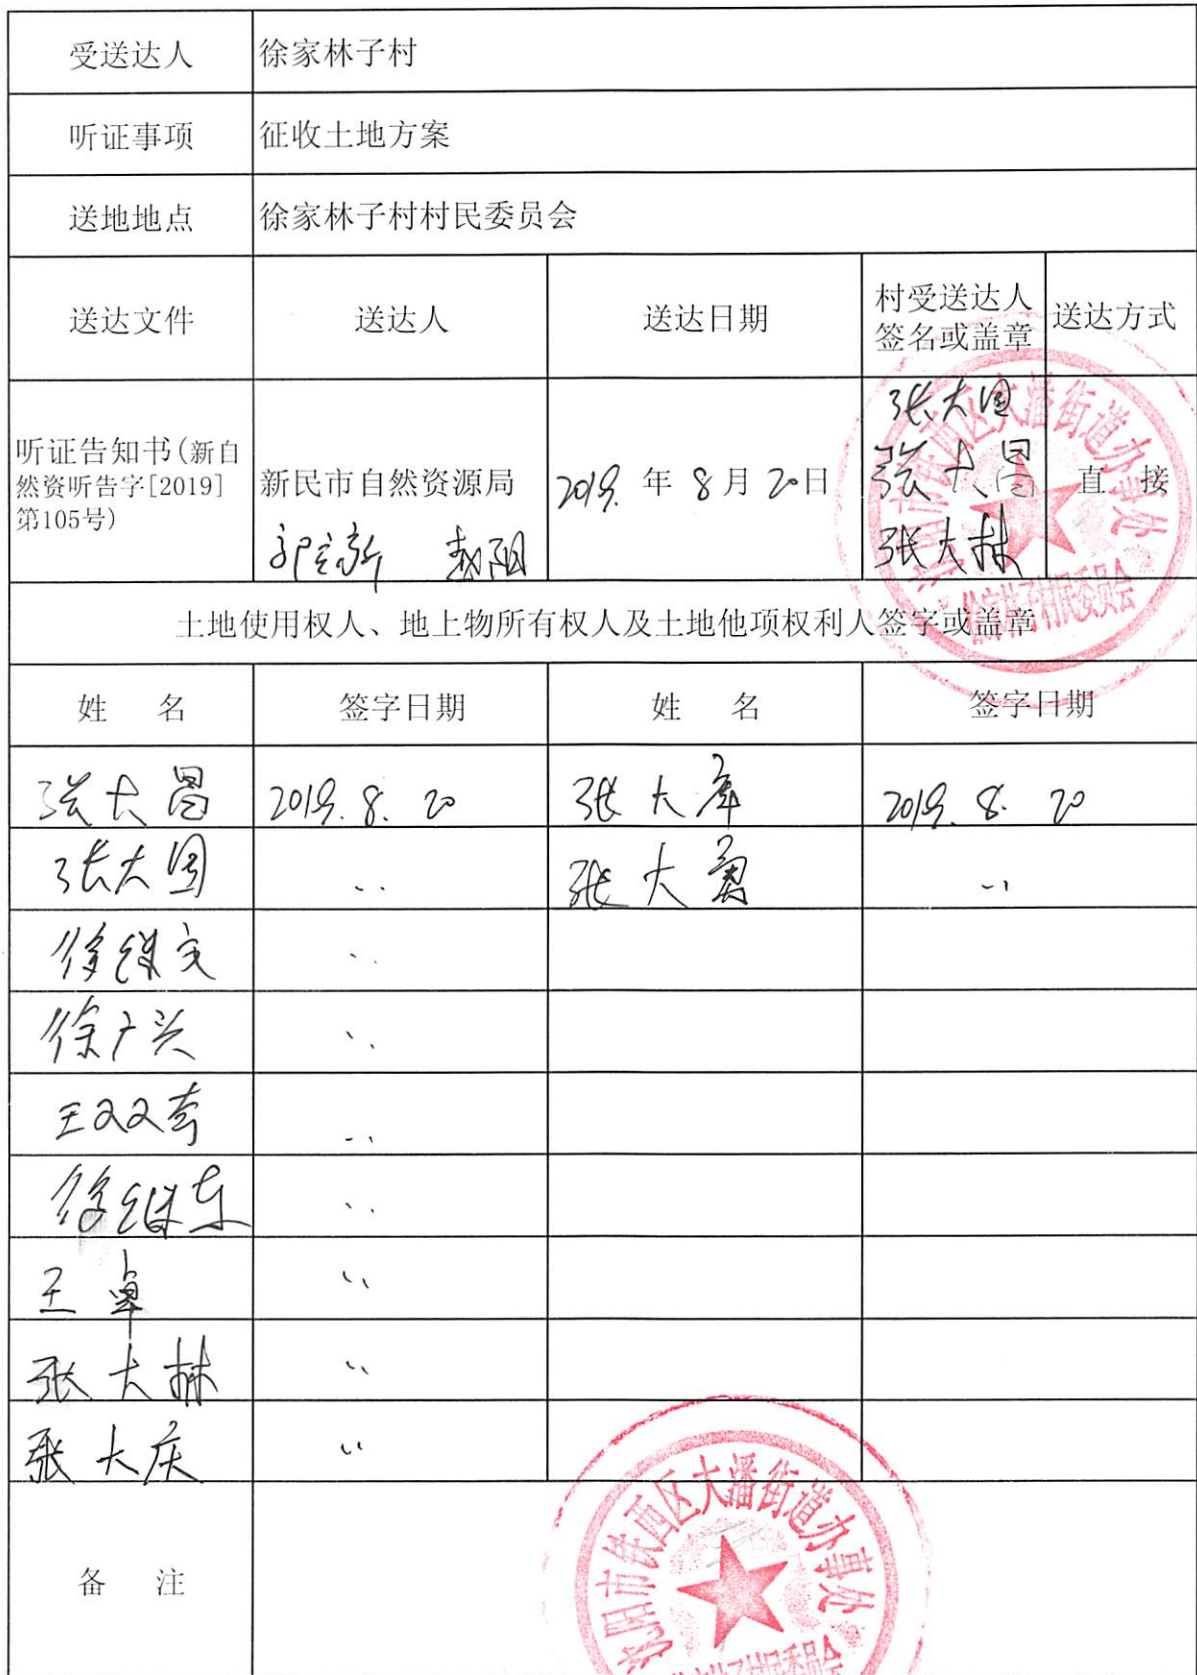 受送达人 徐家林子村
听证事项 征收土地方案
送地地点 徐家林子村村民委员会
送达文件 送达人 送达日期 村受送达人签名或盖章 送达方式
听证告知书(新自
然资听告字[2019]
第105号)
新民市自然资源局
2019. 年 8月 20日
张大国
张大昌
张大林
直 接
赵阳
沈阳市铁西区大潘街道办事处
徐家林子村民委员会
土地使用权人、地上物所有权人及土地他项权利人签字或盖章
姓 名 签字日期 姓 名 签字日期
张大昌 2019. 8. 20 张大库 2019. 8. 20
张大国 〃 张大勇 〃
徐继文 〃
徐广兴 〃
王双双 〃
徐继东 〃
王卓 〃
张大林 〃
张大庆 〃
备 注
沈阳市铁西区大潘街道办事处
徐家林子村民委员会